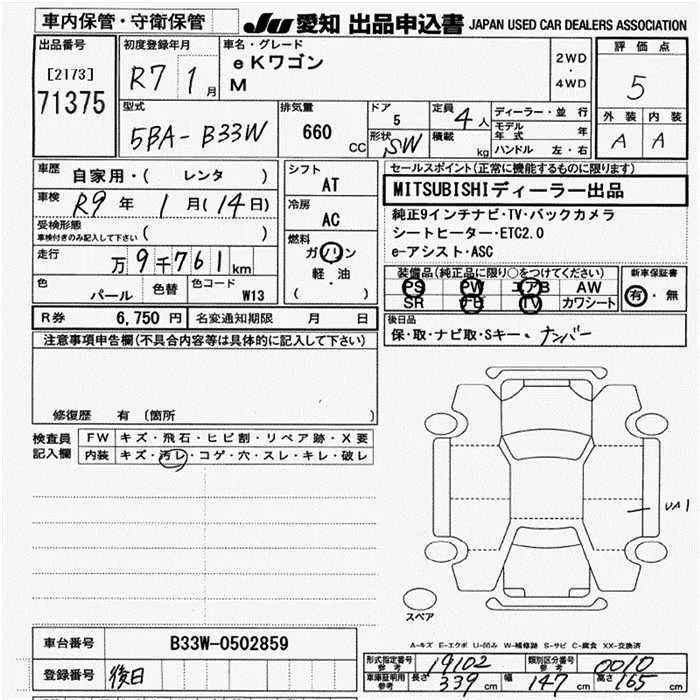 車内保管・守衛保管
JU 愛知 出品申込書 JAPAN USED CAR DEALERS ASSOCIATION
出品番号
[2173]
71375
初度登録年月
R7 1月
車名・グレード
eKワゴン
M
2WD
・
4WD
評価点
5
外装 内装
A A
型式
5BA-B33W
排気量
660 CC
ドア
5
形状
SW
定員
4人
積載
kg
ディーラー・並行
モデル年式 年
ハンドル 左・右
車歴
自家用・( レンタ )
車検
R9年 1月(14日)
受検形態
車検付きのみ記入して下さい ( )
走行
万9千761km
色
パール
色替
色コード
W13
シフト
AT
冷房
AC
燃料
ガソリン
軽・油
( )
セールスポイント(正常に機能するものに限ります)
MITSUBISHIディーラー出品
純正9インチナビ・TV・バックカメラ
シートヒーター・ETC2.0
e-アシスト・ASC
装備品(純正品に限り○をつけてください)
PS PW エアB AW
SR ナビ TV カワシート
新車保証書
有・無
R券 6,750円 名変通知期限 月 日
後日品
保・取・ナビ取・Sキー・ナンバー
注意事項申告欄(不具合内容等は具体的に記入して下さい)
修復歴 有 (箇所
検査員
記入欄
FW キズ・飛石・ヒビ割・リペア跡・X要
内装 キズ・汚レ・コゲ・穴・スレ・キレ・破レ
UA1
スペア
A-キズ E-エクボ U-凹み W-補修跡 S-サビ C-腐食 XX-交換済
車台番号 B33W-0502859
登録番号 後日
形式指定番号
参考
19102
類別区分番号
参考
0010
車庫証明用
参考
長さ 339 cm 幅 147 cm 高さ 165 cm